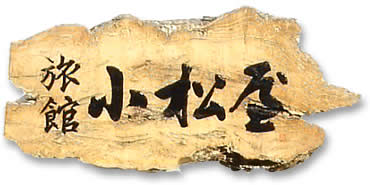 旅館
小松屋